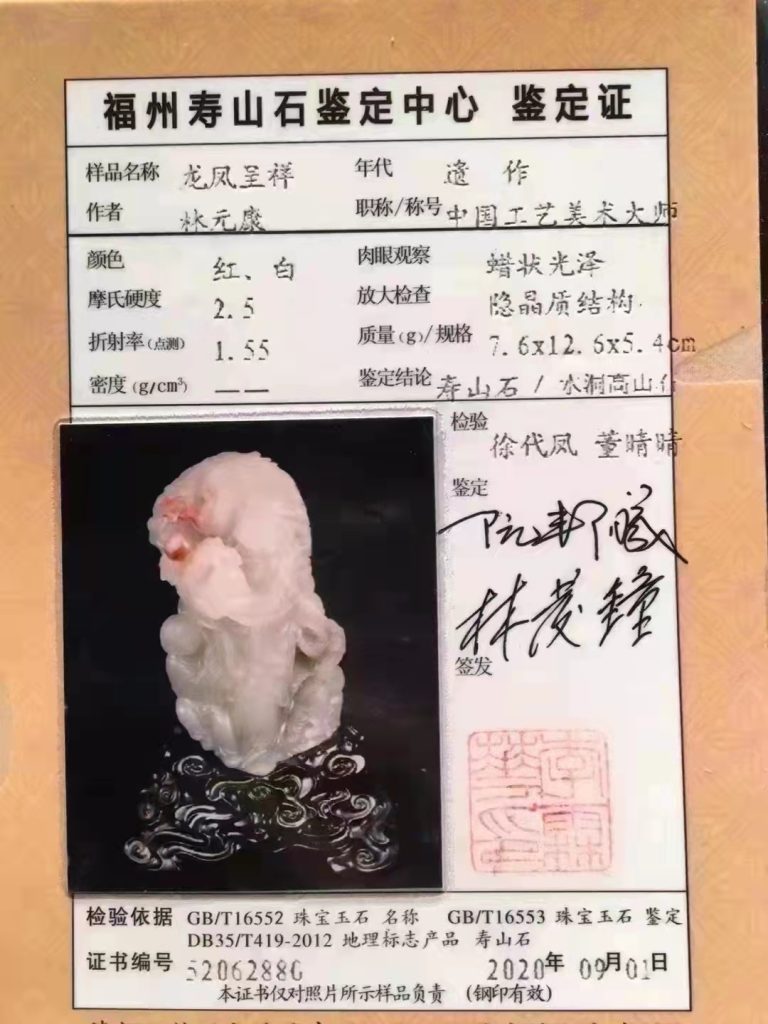 福州寿山石鉴定中心 鉴定证
样品名称 龙凤呈祥 年代 遗 作
作者 林元康 职称/称号 中国工艺美术大师
颜色 红、白 肉眼观察 蜡状光泽
摩氏硬度 2.5 放大检查 隐晶质结构
折射率(点测) 1.55 质量(g)/规格 7.6x12.6x5.4cm
密度(g/cm³) —— 鉴定结论 寿山石/水洞高山石
检验 徐代凤 董晴晴
鉴定
签发
检验依据 GB/T16552 珠宝玉石 名称 GB/T16553 珠宝玉石 鉴定
DB35/T419-2012 地理标志产品 寿山石
证书编号 2020年 09月01日
本证书仅对照片所示样品负责 (钢印有效)